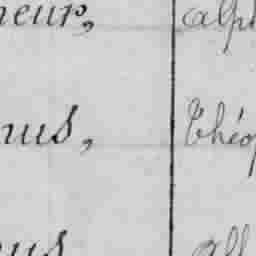 neur, alph
nus, théop
nus all